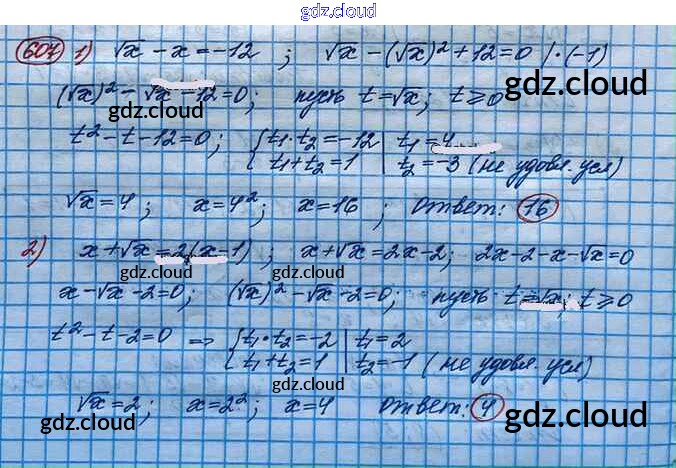 gdz.cloud
607 1) √x - x = -12 ; √x - (√x)² + 12 = 0 | · (-1)
gdz.cloud
(√x)² - √x - 12 = 0; пусть t = √x; t ≥ 0
gdz.cloud
t² - t - 12 = 0; { t₁ · t₂ = -12 | t₁ = 4
gdz.cloud
t₁ + t₂ = 1 | t₂ = -3 (не удовл. усл)
√x = 4 ; x = 4² ; x = 16 ; Ответ: 16
2) x + √x = 2(x - 1) ; x + √x = 2x - 2 ; 2x - 2 - x - √x = 0
gdz.cloud gdz.cloud
x - √x - 2 = 0; (√x)² - √x - 2 = 0; пусть t = √x; t ≥ 0
gdz.cloud
t² - t - 2 = 0 => { t₁ · t₂ = -2 | t₁ = 2
t₁ + t₂ = 1 | t₂ = -1 (не удовл. усл)
gdz.cloud
√x = 2 ; x = 2² ; x = 4 Ответ: 4
gdz.cloud gdz.cloud